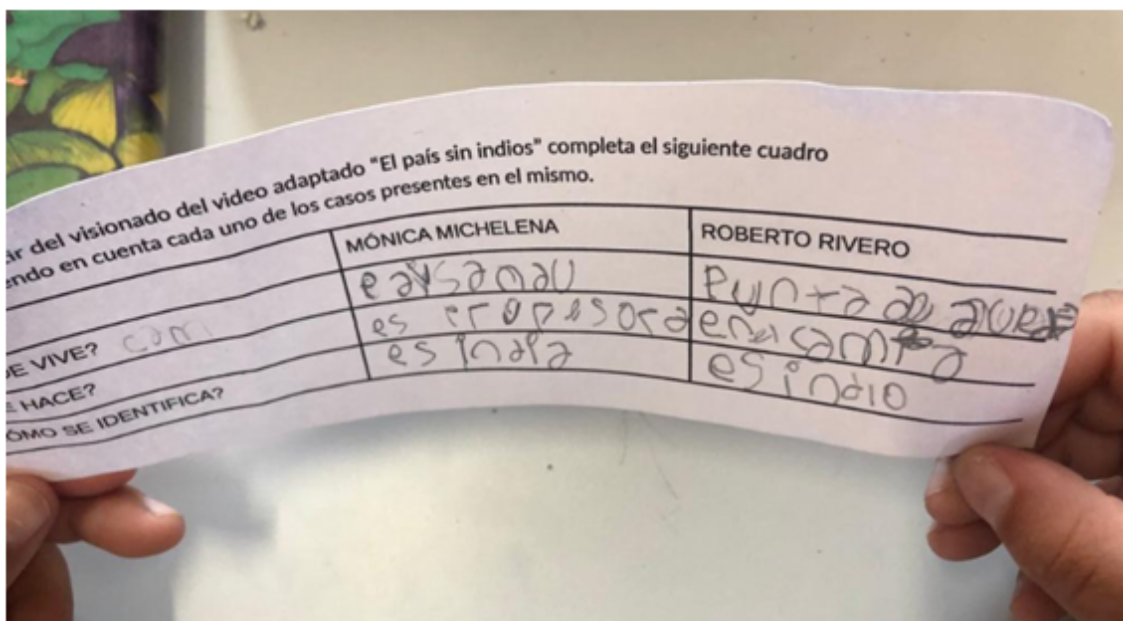 ar del visionado del video adaptado "El país sin indios" completa el siguiente cuadro
endo en cuenta cada uno de los casos presentes en el mismo.
MÓNICA MICHELENA ROBERTO RIVERO
DE VIVE? com paysandu punta del
E HACE? es propesora
ÓMO SE IDENTIFICA? es india es indio